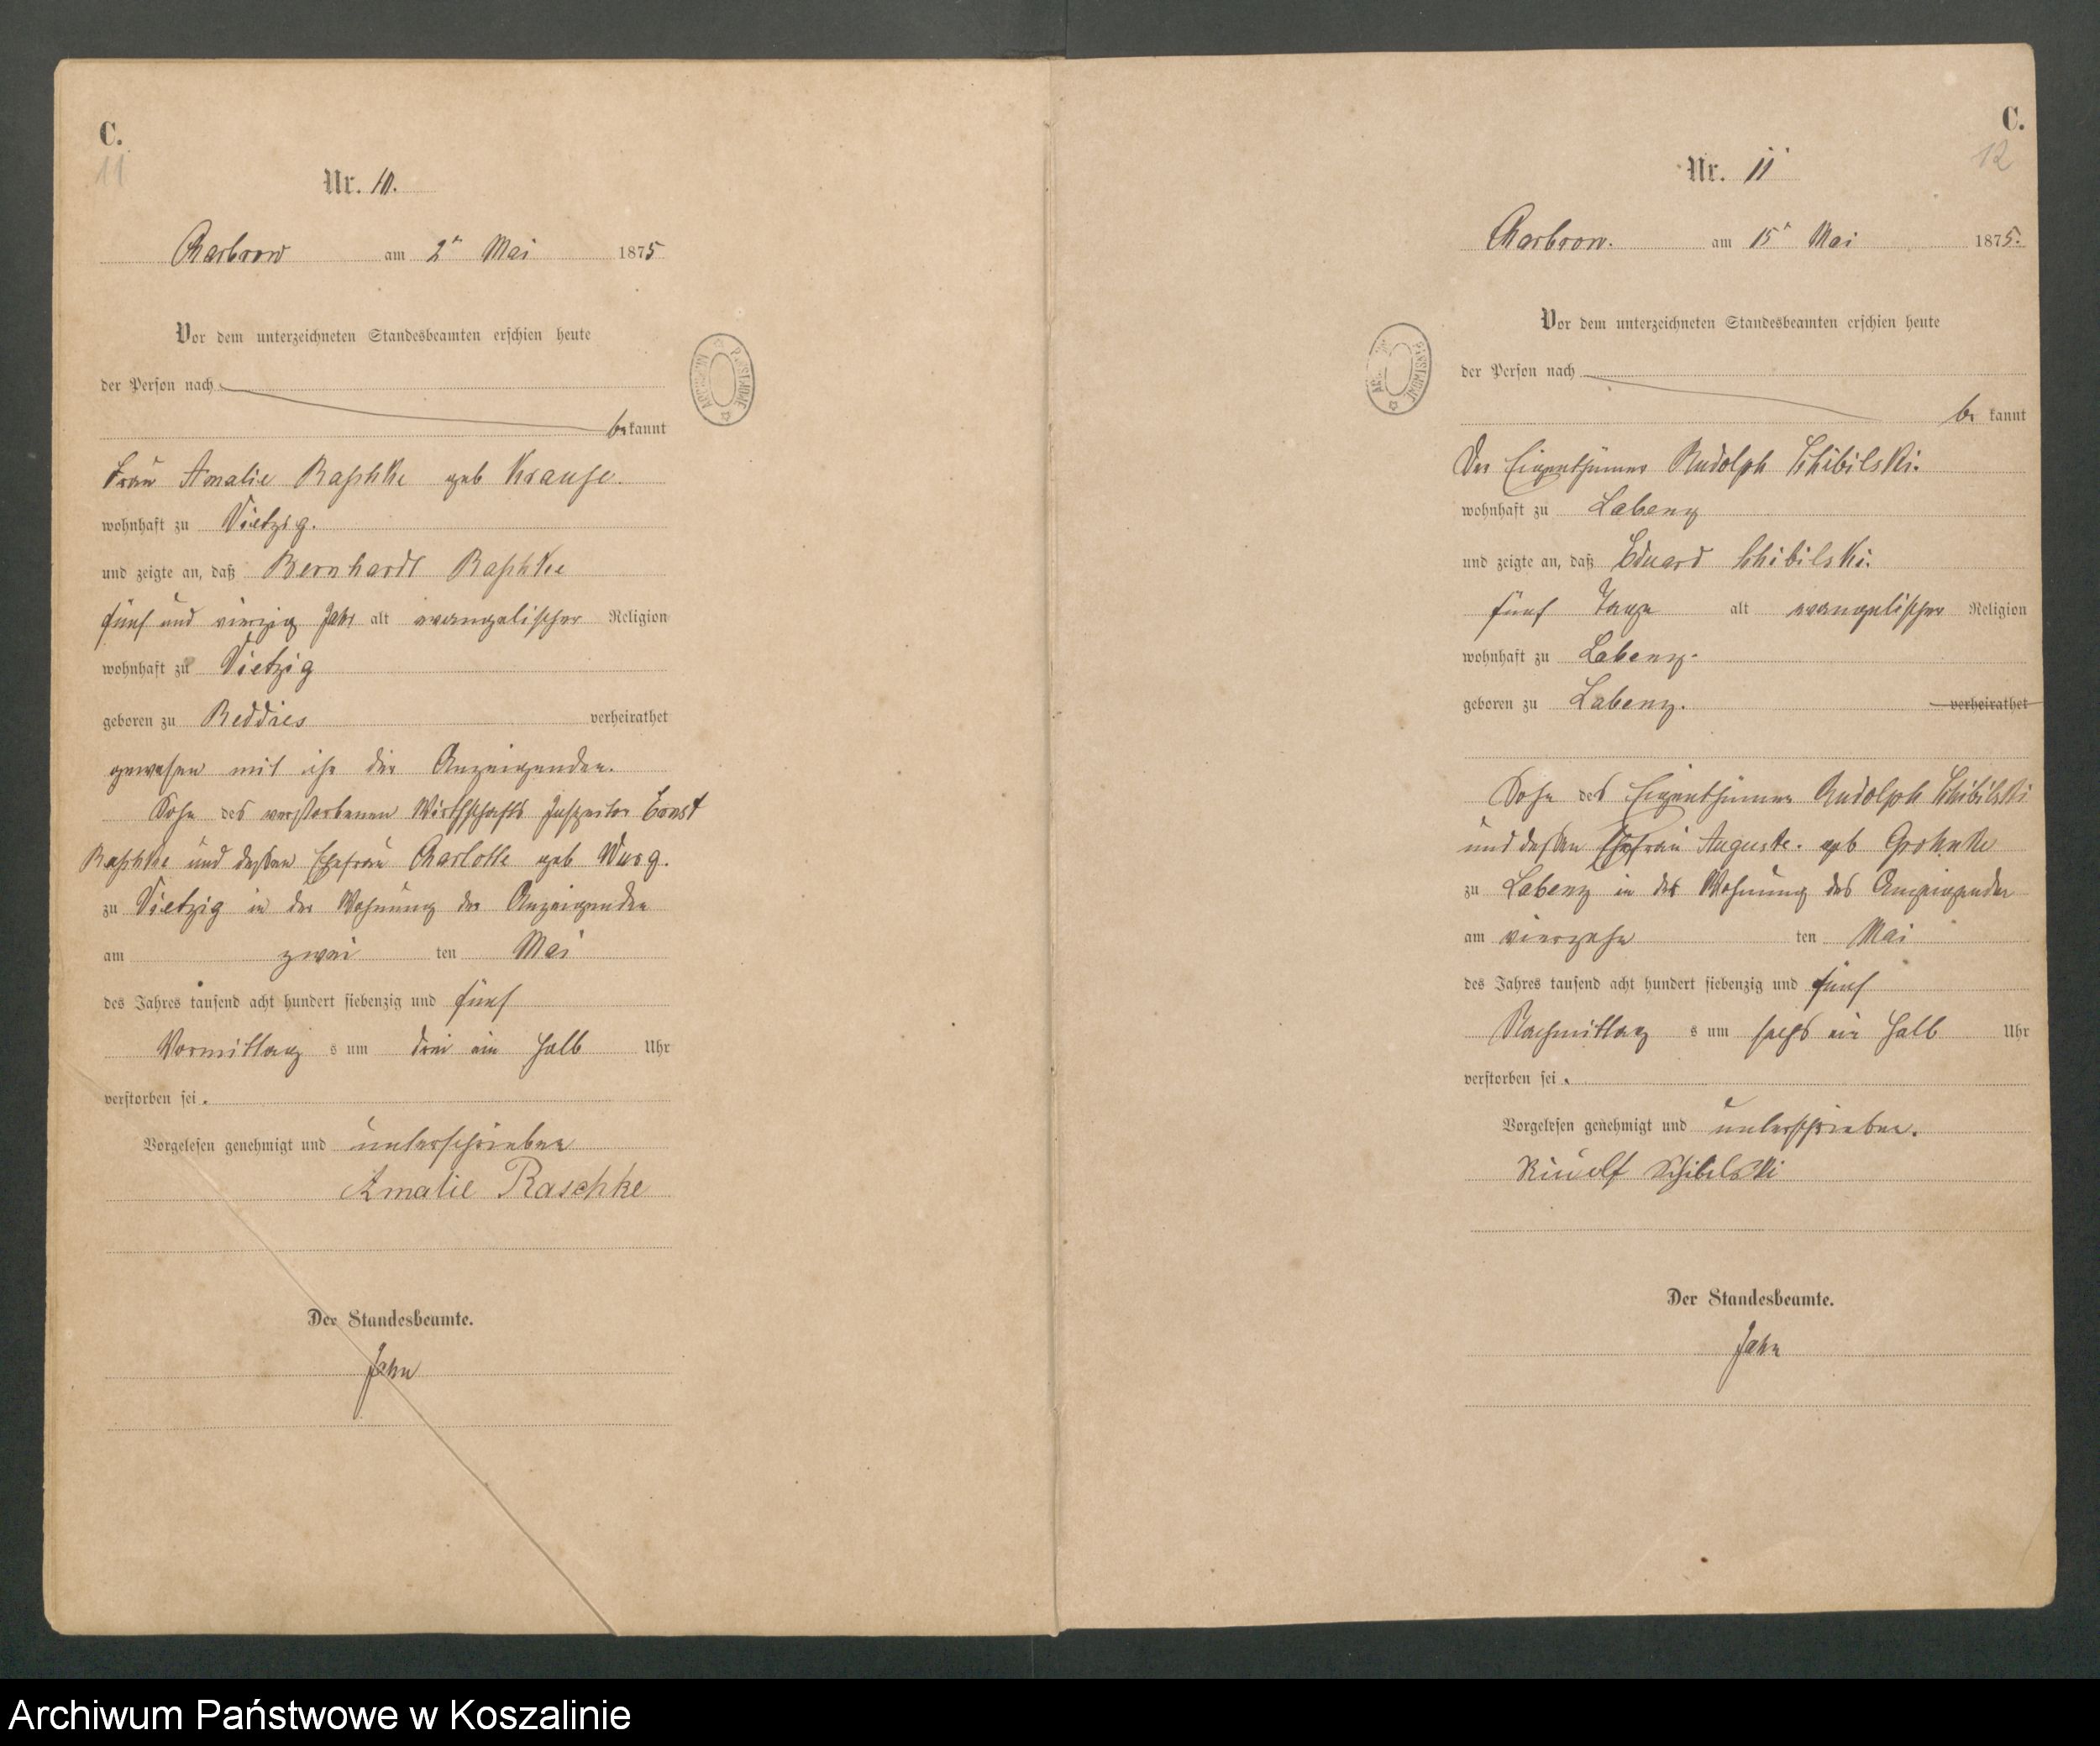 C.
11
Nr. 10.
Charbrow am 2ten Mai 1875
Vor dem unterzeichneten Standesbeamten erschien heute
der Person nach
bekannt
Frau Amalie Raschke geb Krause.
wohnhaft zu Vietzig.
und zeigte an, daß Bernhardt Raschke
fünf und vierzig Jahr alt evangelischer Religion
wohnhaft zu Vietzig
geboren zu Reddies verheirathet
gewesen mit ihr der Anzeigenden.
Sohn des verstorbenen Wirthschafts Inspektor Ernst
Raschke und dessen Ehefrau Charlotte geb
zu Vietzig in der Wohnung der Anzeigenden
am zwei ten Mai
des Jahres tausend acht hundert siebenzig und fünf
Vormittag s um drei ein halb Uhr
verstorben sei.
Vorgelesen genehmigt und unterschrieben
Amalie Raschke
Der Standesbeamte.
Jahn
C.
12
Nr. 11
Charbrow. am 15ten Mai 1875.
Vor dem unterzeichneten Standesbeamten erschien heute
der Person nach
be kannt
Der Eigenthümer Rudolph Schibilski.
wohnhaft zu Labenz
und zeigte an, daß Eduard Schibilski.
fünf Tage alt evangelischer Religion
wohnhaft zu Labenz.
geboren zu Labenz. verheirathet
Sohn des Eigenthümer Rudolph Schibilski
und dessen Ehefrau Auguste. geb
zu Labenz in der Wohnung des Anzeigenden
am vierzehn ten Mai
des Jahres tausend acht hundert siebenzig und fünf
Nachmittag s um sechs ein halb Uhr
verstorben sei.
Vorgelesen genehmigt und unterschrieben.
Schibilski
Der Standesbeamte.
Jahn
Archiwum Państwowe w Koszalinie